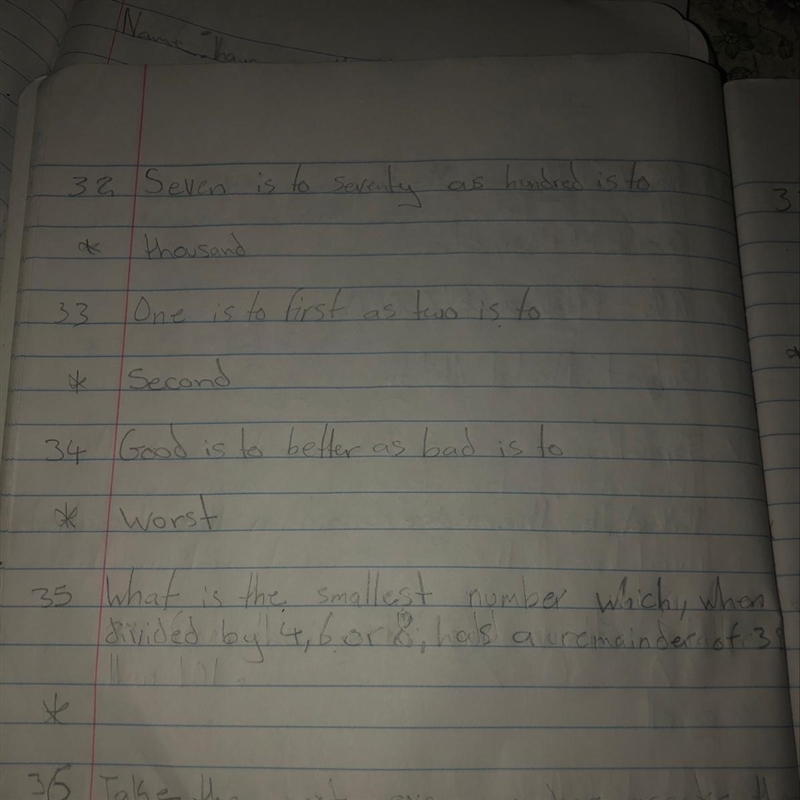 Name
32 Seven is to seventy as hundred is to
* thousand
33 One is to first as two is to
* Second
34 Good is to better as bad is to
* Worst
35 What is the smallest number which, when
divided by 4, 6 or 8, has a remainder of 3
*
36 Take the
3
*